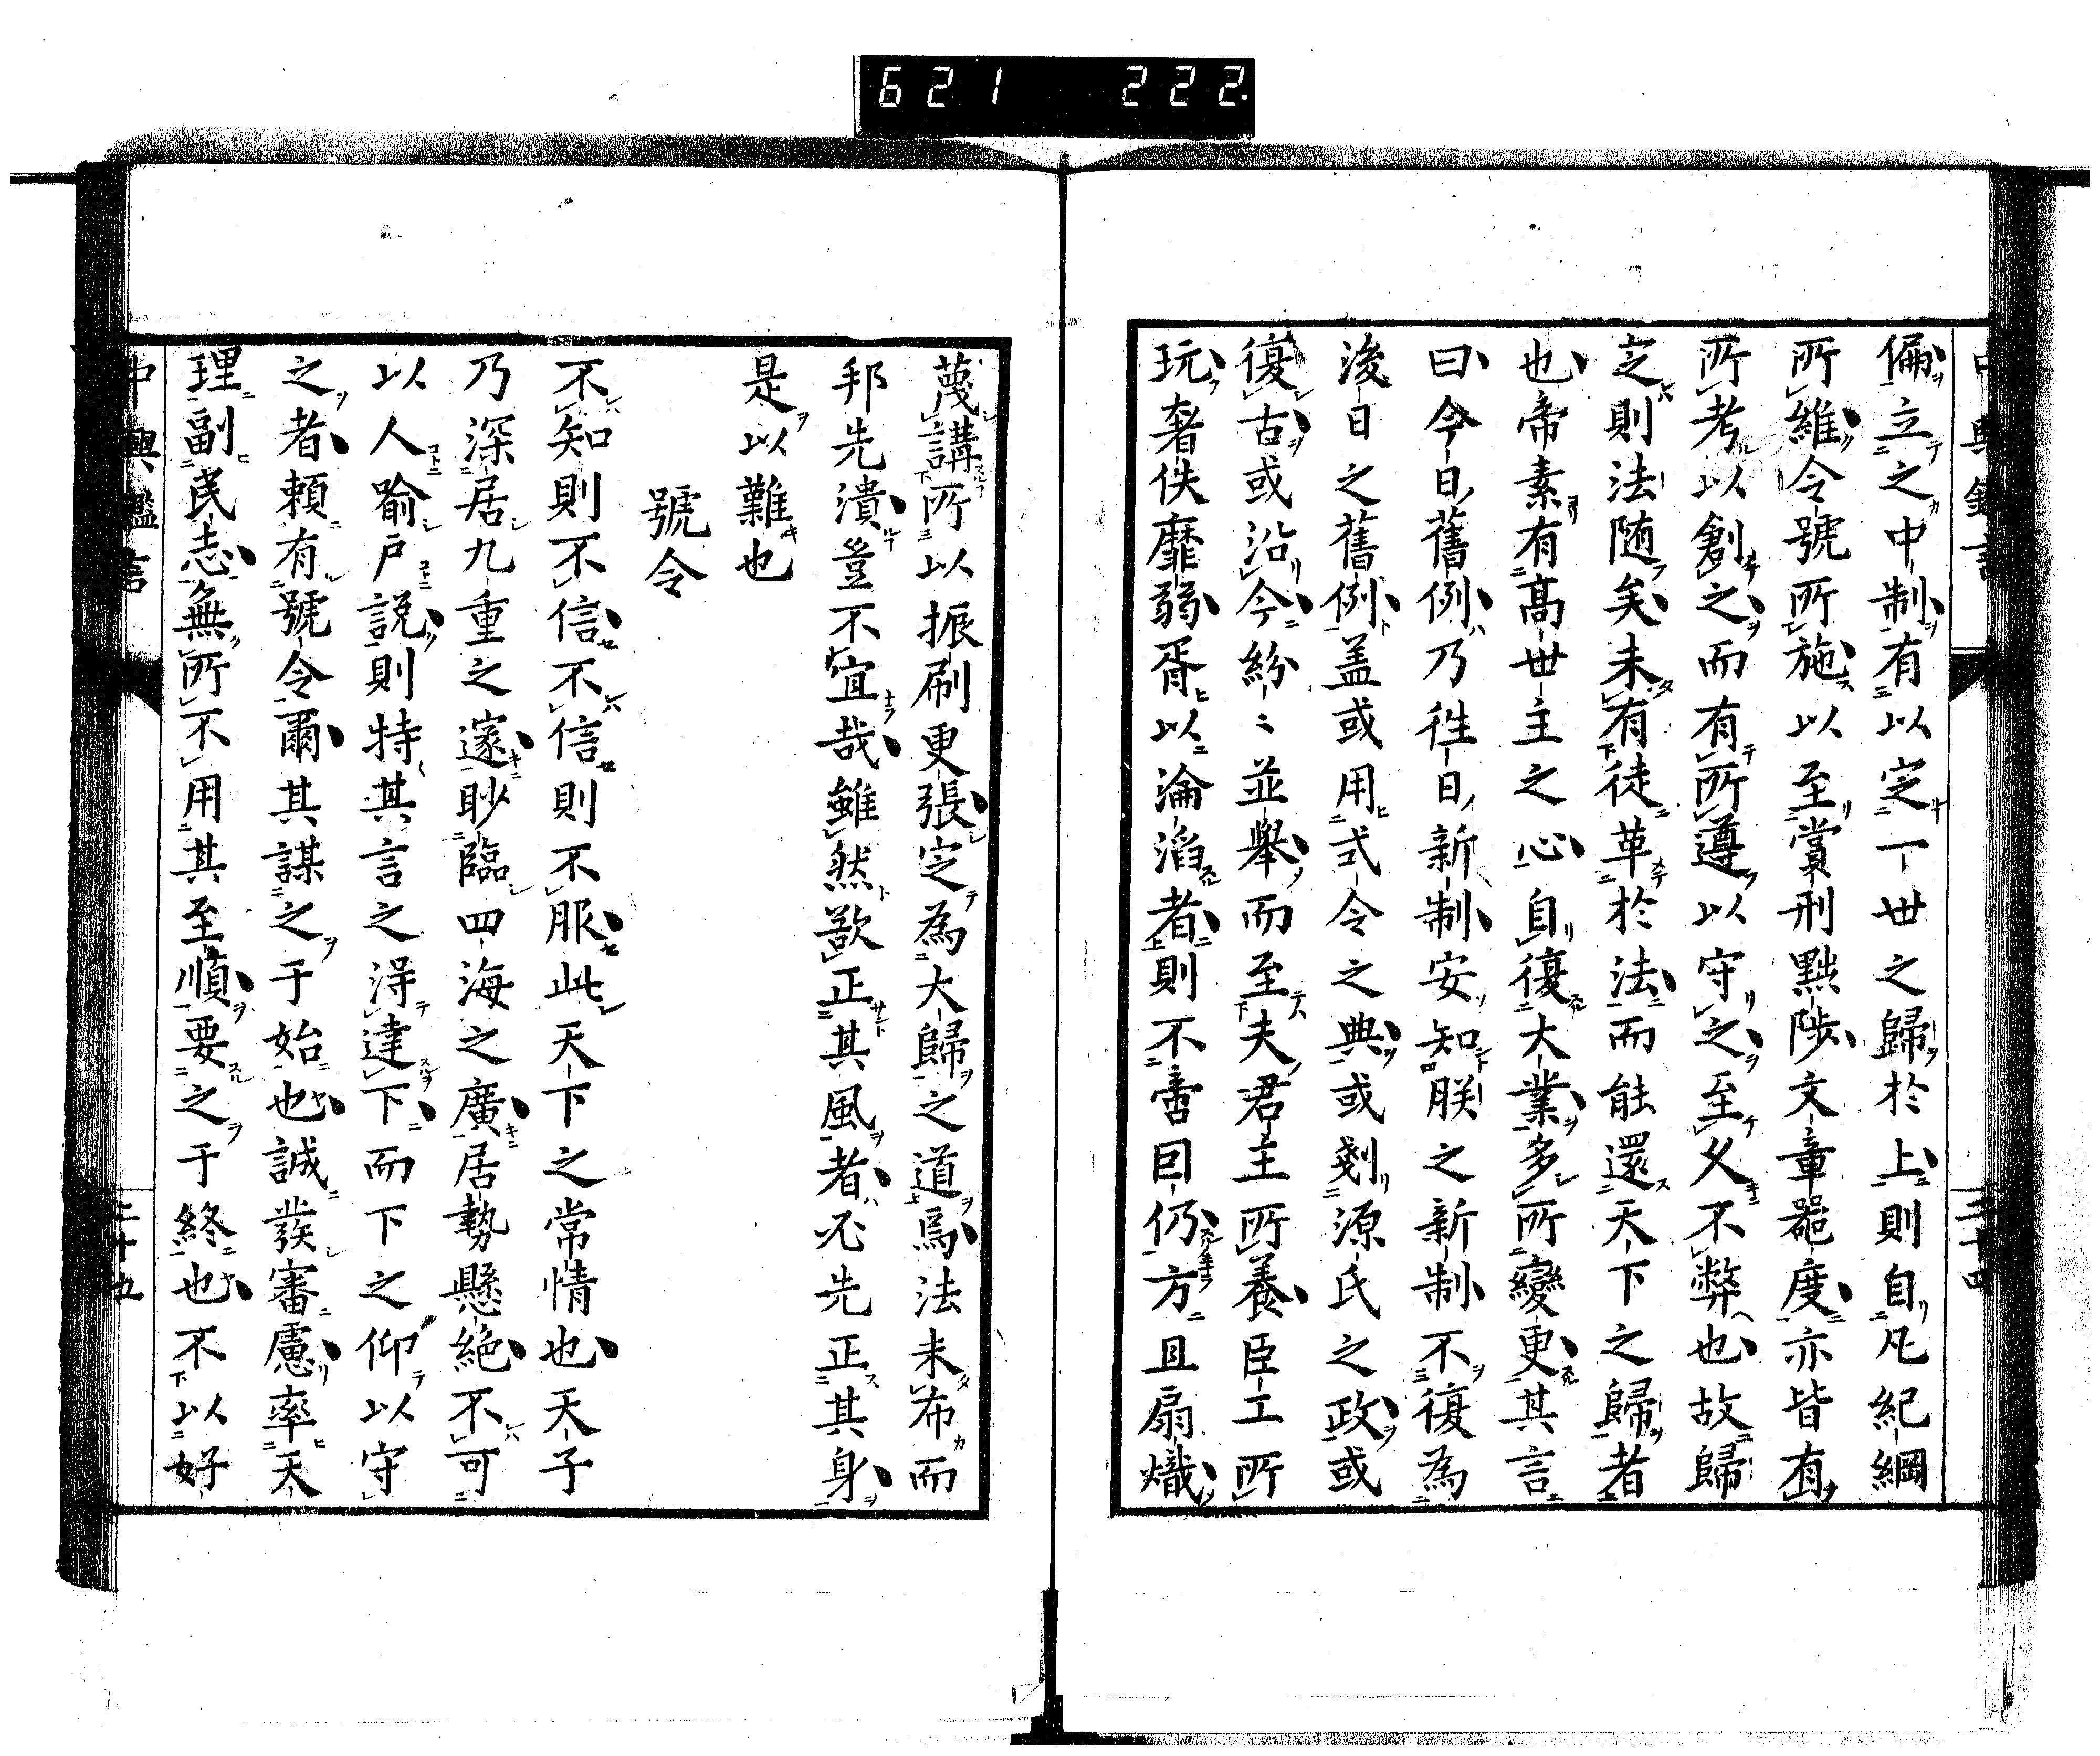 621 222
偏立之中制有以定一世之歸於上則自凡紀綱
所維令號所施以至賞刑黜陟文章器度亦皆有
所考以創之而有所遵以守之至久不弊也故歸
之則法随矣未有徒革於法而能還天下之歸者
也帝素有高世主之心自復大業多所變更其言
曰今日舊例乃徃日新制安知朕之新制不復為
後日之舊例盖或用式令之典或剗源氏之政或
復古或沿今紛〻並舉而至夫君主所養臣工所
玩奢佚靡弱胥以淪滔者則不啻因仍方且扇熾
蔑講所以振刷更張定為大歸之道焉法未布而
邦先潰豈不宜哉雖然欲正其風者必先正其身
是以難也
號令
不知則不信不信則不服此天下之常情也天子
乃深居九重之邃眇臨四海之廣居勢懸絶不可
以人喻戸說則特其言之得達下而下之仰以守
之者賴有號令爾其謀之于始也誠發審慮率天
理副民志無所不用其至順要之于終也不以好
中興鑑言